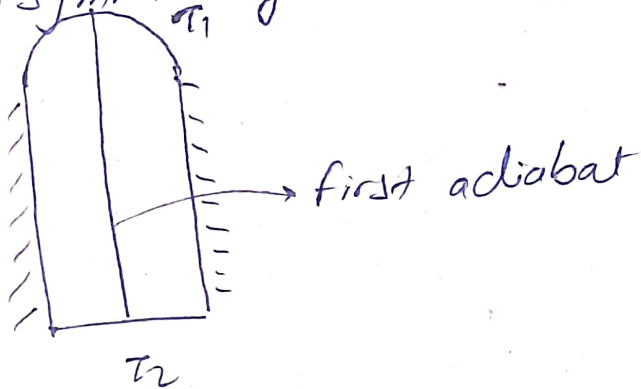 T1
first adiabat
T2